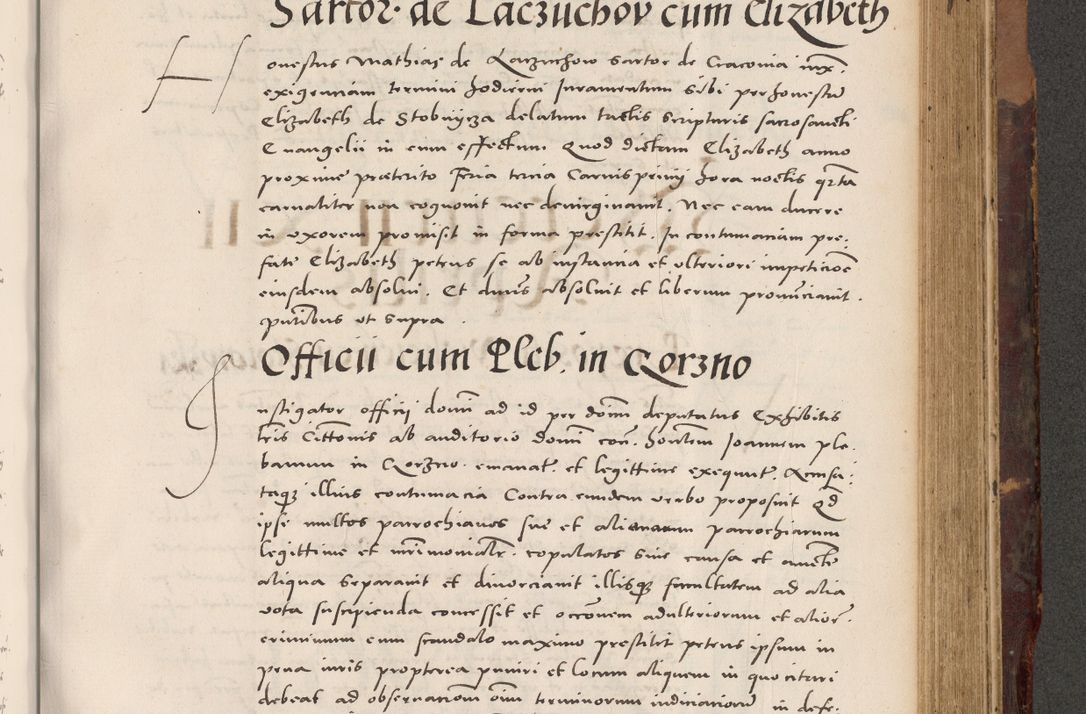 Sartor. de Laczuchov cum Elizabeth
Honestus Mathias de Laczuchow Sartor de Cracovia iux.
exigenciam termini hodierni Iuramentum sibi per honestā
Elizabeth de Stobnycza delatum tactis scripturis sacrosancti
Euangelii in eum effectum Quod dictam Elizabeth anno
proxime præterito Feria tercia Carnisprivy hora noctis qrta
carnaliter non cognovit nec devirginavit. Nec eam ducere
in uxorem promisit in forma prestitit. In contumaciam pre:
fate Elizabeth petens se ab instancia et ulteriori impeticiōe
eiusdem absolvi. Et dnūs absolvit et liberum pronūciavit.
pntībus ut supra.
Officii cum Pleb. in Qorzno
Instigator officy domī ad id per domī deputatus Exhibitis
lrīs Cittonis ab auditorio domī con. hontem Ioannem ple.
banum in Qorzno. emanat. et legittime exequut. Accusa:
taq3 illius contumacia Contra eundem verbo proposuit Qd
ipse multos parrochianos sue et alienarum parrochiarum
legittime et mr̄imonialr. copulatos sine causa et aucte
aliqua separavit et divorciavit illisq3 facultatem ad alia
vota suscipienda concessit et occōnem adulteriorum et alior.
criminum cum scandalo maximo prestitit petens ipsum in
pena iuris propterea puniri et locum aliquem in quo citari
debeat ad observaciom oīm terminorum iudiciariorū in defe.